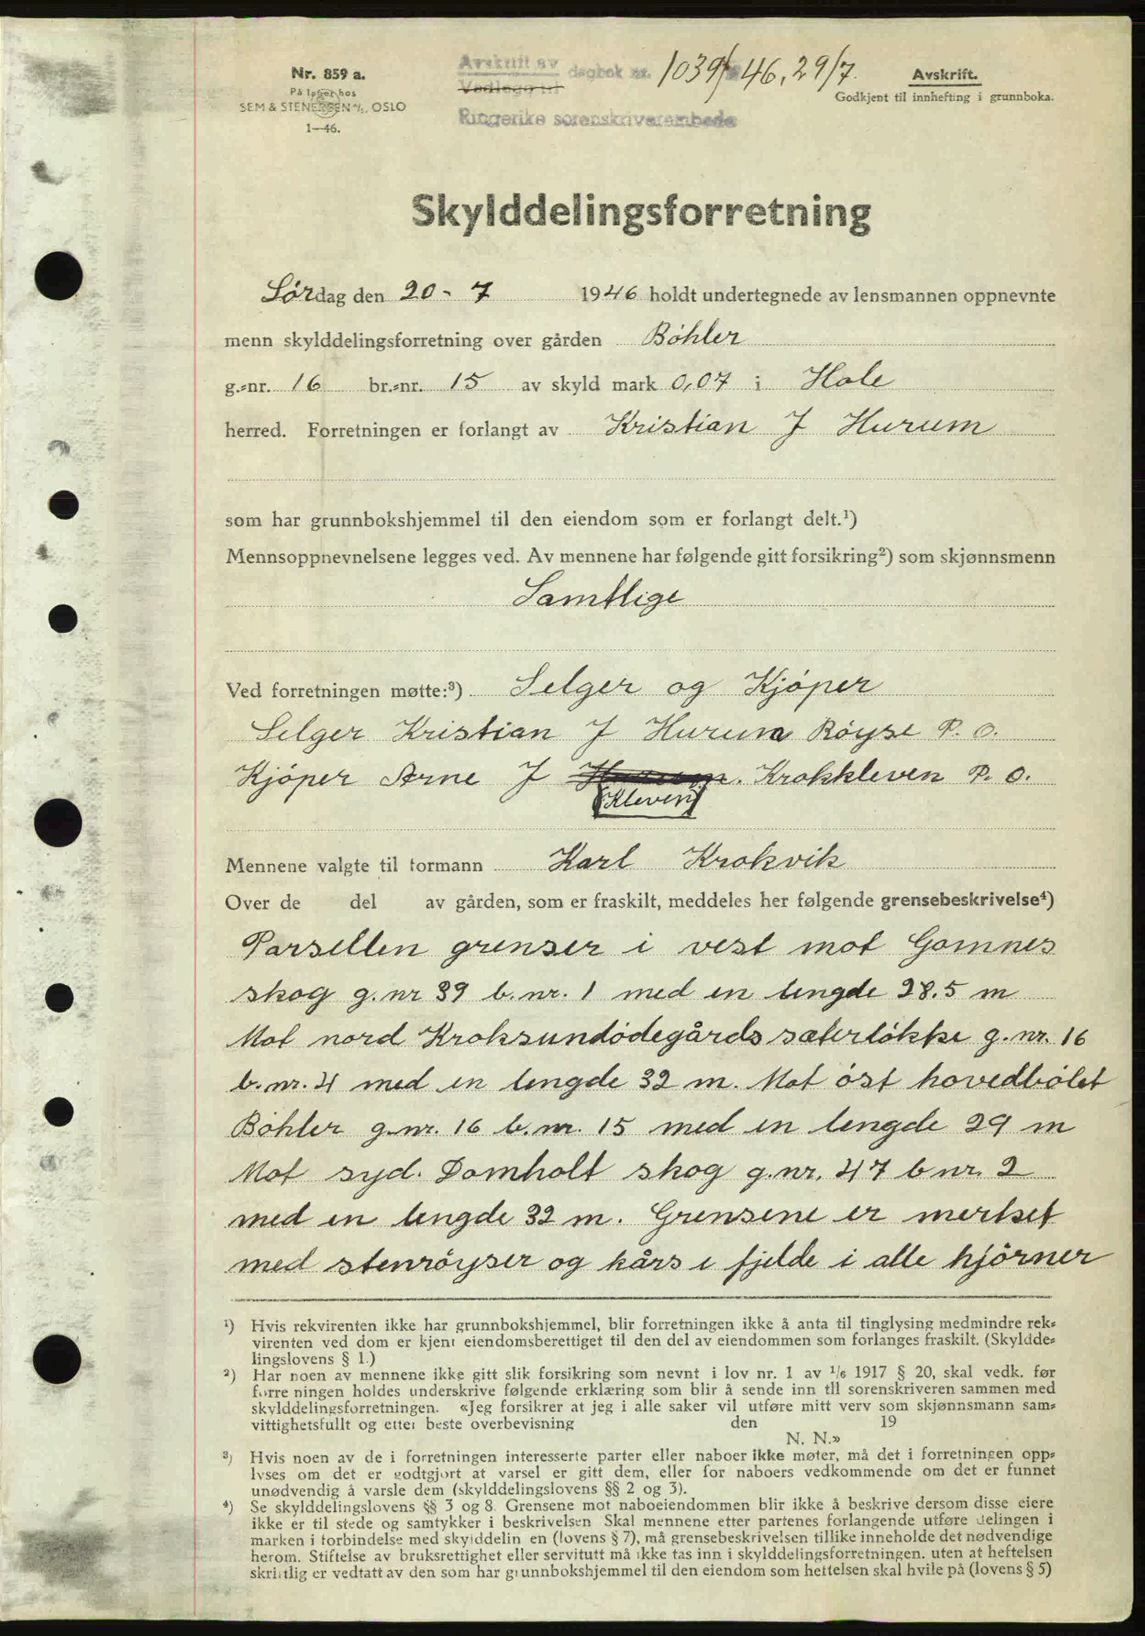 Nr. 859 a.
På lager hos
SEM & STENERSEN A/S, OSLO
1—46.
Avskrift av dagbok nr. 1039/46, 29/7
Vedlegg til
Ringerike sorenskriverembede
Avskrift.
Godkjent til innhefting i grunnboka.
Skylddelingsforretning
Lørdag den 20-7 1946 holdt undertegnede av lensmannen oppnevnte
menn skylddelingsforretning over gården Bøhler
g.-nr. 16 br.-nr. 15 av skyld mark 0,07 i Hole
herred. Forretningen er forlangt av Kristian J Hurum
som har grunnbokshjemmel til den eiendom som er forlangt delt.¹)
Mennsoppnevnelsene legges ved. Av mennene har følgende gitt forsikring²) som skjønnsmenn
Samtlige
Ved forretningen møtte:³) Selger og Kjøper
Selger Kristian J Hurum Røyse P. O.
Kjøper Arne J Hurum. Krokkleven P. O.
Kleven
Mennene valgte til formann Karl Krokvik
Over de del av gården, som er fraskilt, meddeles her følgende grensebeskrivelse⁴)
Parsellen grenser i vest mot Gomnes
skog g.nr 39 b.nr. 1 med en lengde 28.5 m
Mot nord Kroksundødegårds sæterløkke g.nr. 16
b.nr. 4 med en lengde 32 m. Mot øst hovedbølet
Bøhler g.nr. 16 b.nr. 15 med en lengde 29 m
Mot syd. Domholt skog g.nr. 47 b nr. 2
med en lengde 32 m. Grensene er merket
med stenrøyser og kårs i fjelde i alle hjörner
¹) Hvis rekvirenten ikke har grunnbokshjemmel, blir forretningen ikke å anta til tinglysing medmindre rek-
virenten ved dom er kjent eiendomsberettiget til den del av eiendommen som forlanges fraskilt. (Skyldde-
lingslovens § 1.)
²) Har noen av mennene ikke gitt slik forsikring som nevnt i lov nr. 1 av 1/6 1917 § 20, skal vedk. før
forretningen holdes underskrive følgende erklæring som blir å sende inn til sorenskriveren sammen med
skylddelingsforretningen. «Jeg forsikrer at jeg i alle saker vil utføre mitt verv som skjønnsmann sam-
vittighetsfullt og etter beste overbevisning den 19
N. N.»
³) Hvis noen av de i forretningen interesserte parter eller naboer ikke møter, må det i forretningen opp-
lyses om det er godtgjort at varsel er gitt dem, eller for naboers vedkommende om det er funnet
unødvendig å varsle dem (skylddelingslovens §§ 2 og 3).
⁴) Se skylddelingslovens §§ 3 og 8. Grensene mot naboeiendommen blir ikke å beskrive dersom disse eiere
ikke er til stede og samtykker i beskrivelsen Skal mennene etter partenes forlangende utføre delingen i
marken i forbindelse med skylddelingen (lovens § 7), må grensebeskrivelsen tillike inneholde det nødvendige
herom. Stiftelse av bruksrettighet eller servitutt må ikke tas inn i skylddelingsforretningen, uten at heftelsen
skriftlig er vedtatt av den som har grunnbokshjemmel til den eiendom som heftelsen skal hvile på (lovens § 5)